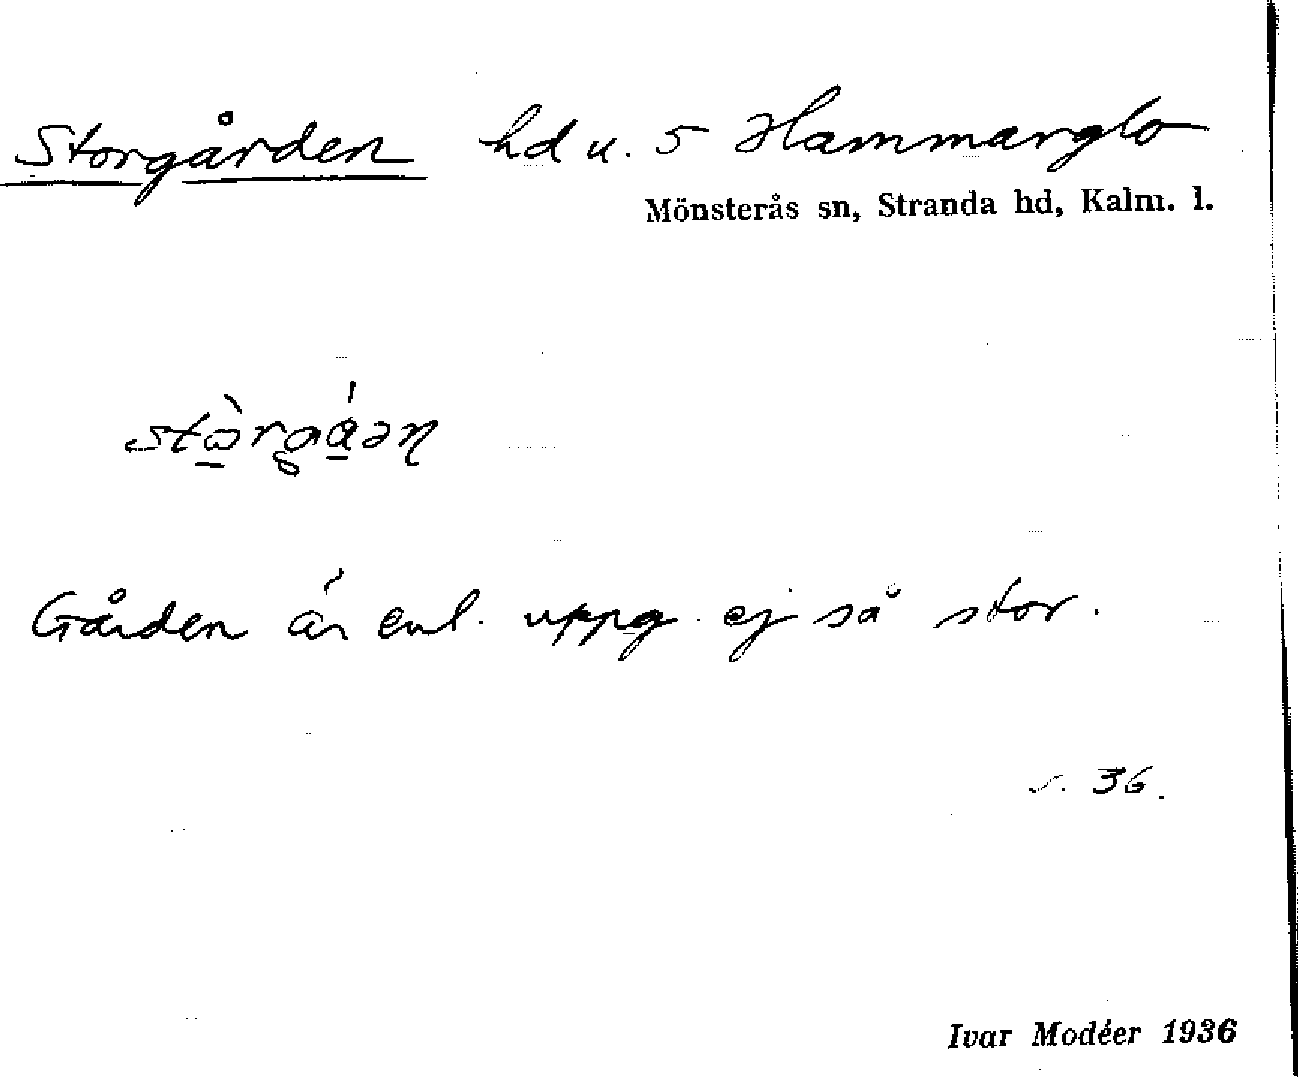 Storgården hd u. 5 Hammarglo
Mönsterås sn, Stranda hd, Kalm. l.
Gården är enl. uppg. ej så stor.
s. 36.
Ivar Modéer 1936